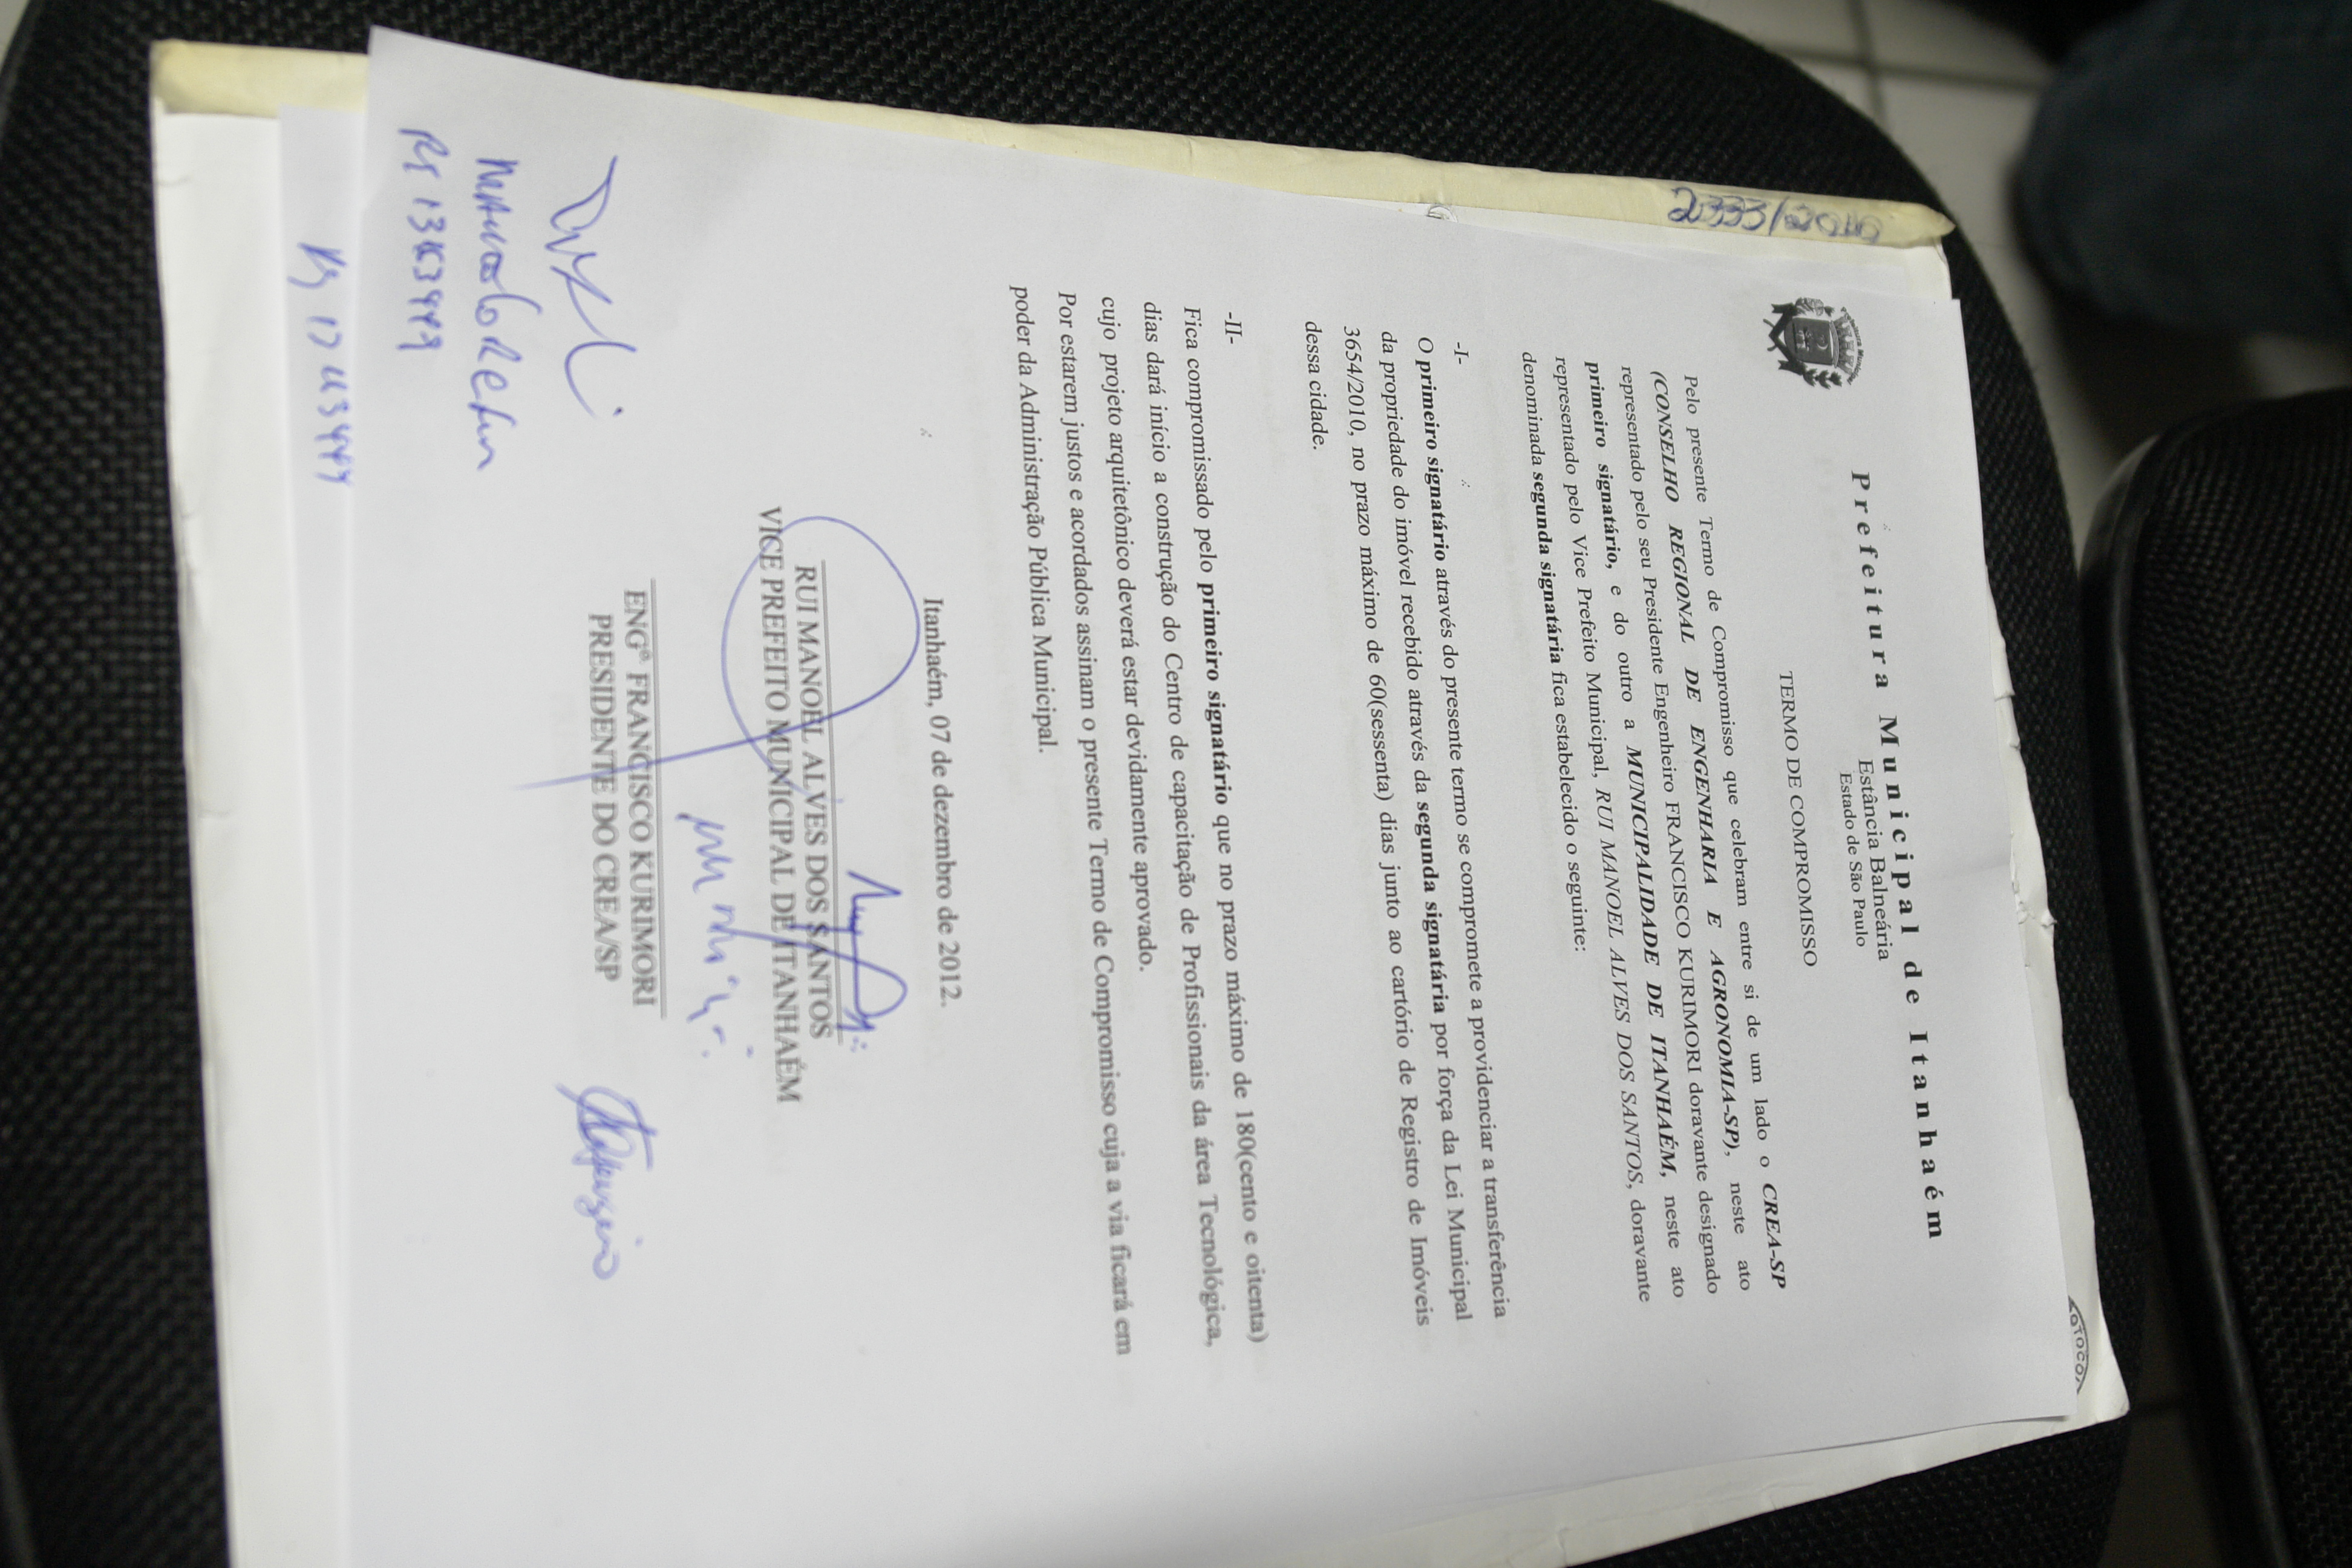 Prefeitura Municipal de Itanhaém
Estância Balneária
Estado de São Paulo
TERMO DE COMPROMISSO
Pelo presente Termo de Compromisso que celebram entre si de um lado o CREA-SP
(CONSELHO REGIONAL DE ENGENHARIA E AGRONOMIA-SP), neste ato
representado pelo seu Presidente Engenheiro FRANCISCO KURIMORI doravante designado
primeiro signatário, e do outro a MUNICIPALIDADE DE ITANHAÉM, neste ato
representado pelo Vice Prefeito Municipal, RUI MANOEL ALVES DOS SANTOS, doravante
denominada segunda signatária fica estabelecido o seguinte:
-I-
O primeiro signatário através do presente termo se compromete a providenciar a transferência
da propriedade do imóvel recebido através da segunda signatária por força da Lei Municipal
3654/2010, no prazo máximo de 60(sessenta) dias junto ao cartório de Registro de Imóveis
dessa cidade.
-II-
Fica compromissado pelo primeiro signatário que no prazo máximo de 180(cento e oitenta)
dias dará início a construção do Centro de capacitação de Profissionais da área Tecnológica,
cujo projeto arquitetônico deverá estar devidamente aprovado.
Por estarem justos e acordados assinam o presente Termo de Compromisso cuja a via ficará em
poder da Administração Pública Municipal.
Itanhaém, 07 de dezembro de 2012.
RUI MANOEL ALVES DOS SANTOS
VICE PREFEITO MUNICIPAL DE ITANHAÉM
ENGº FRANCISCO KURIMORI
PRESIDENTE DO CREA/SP